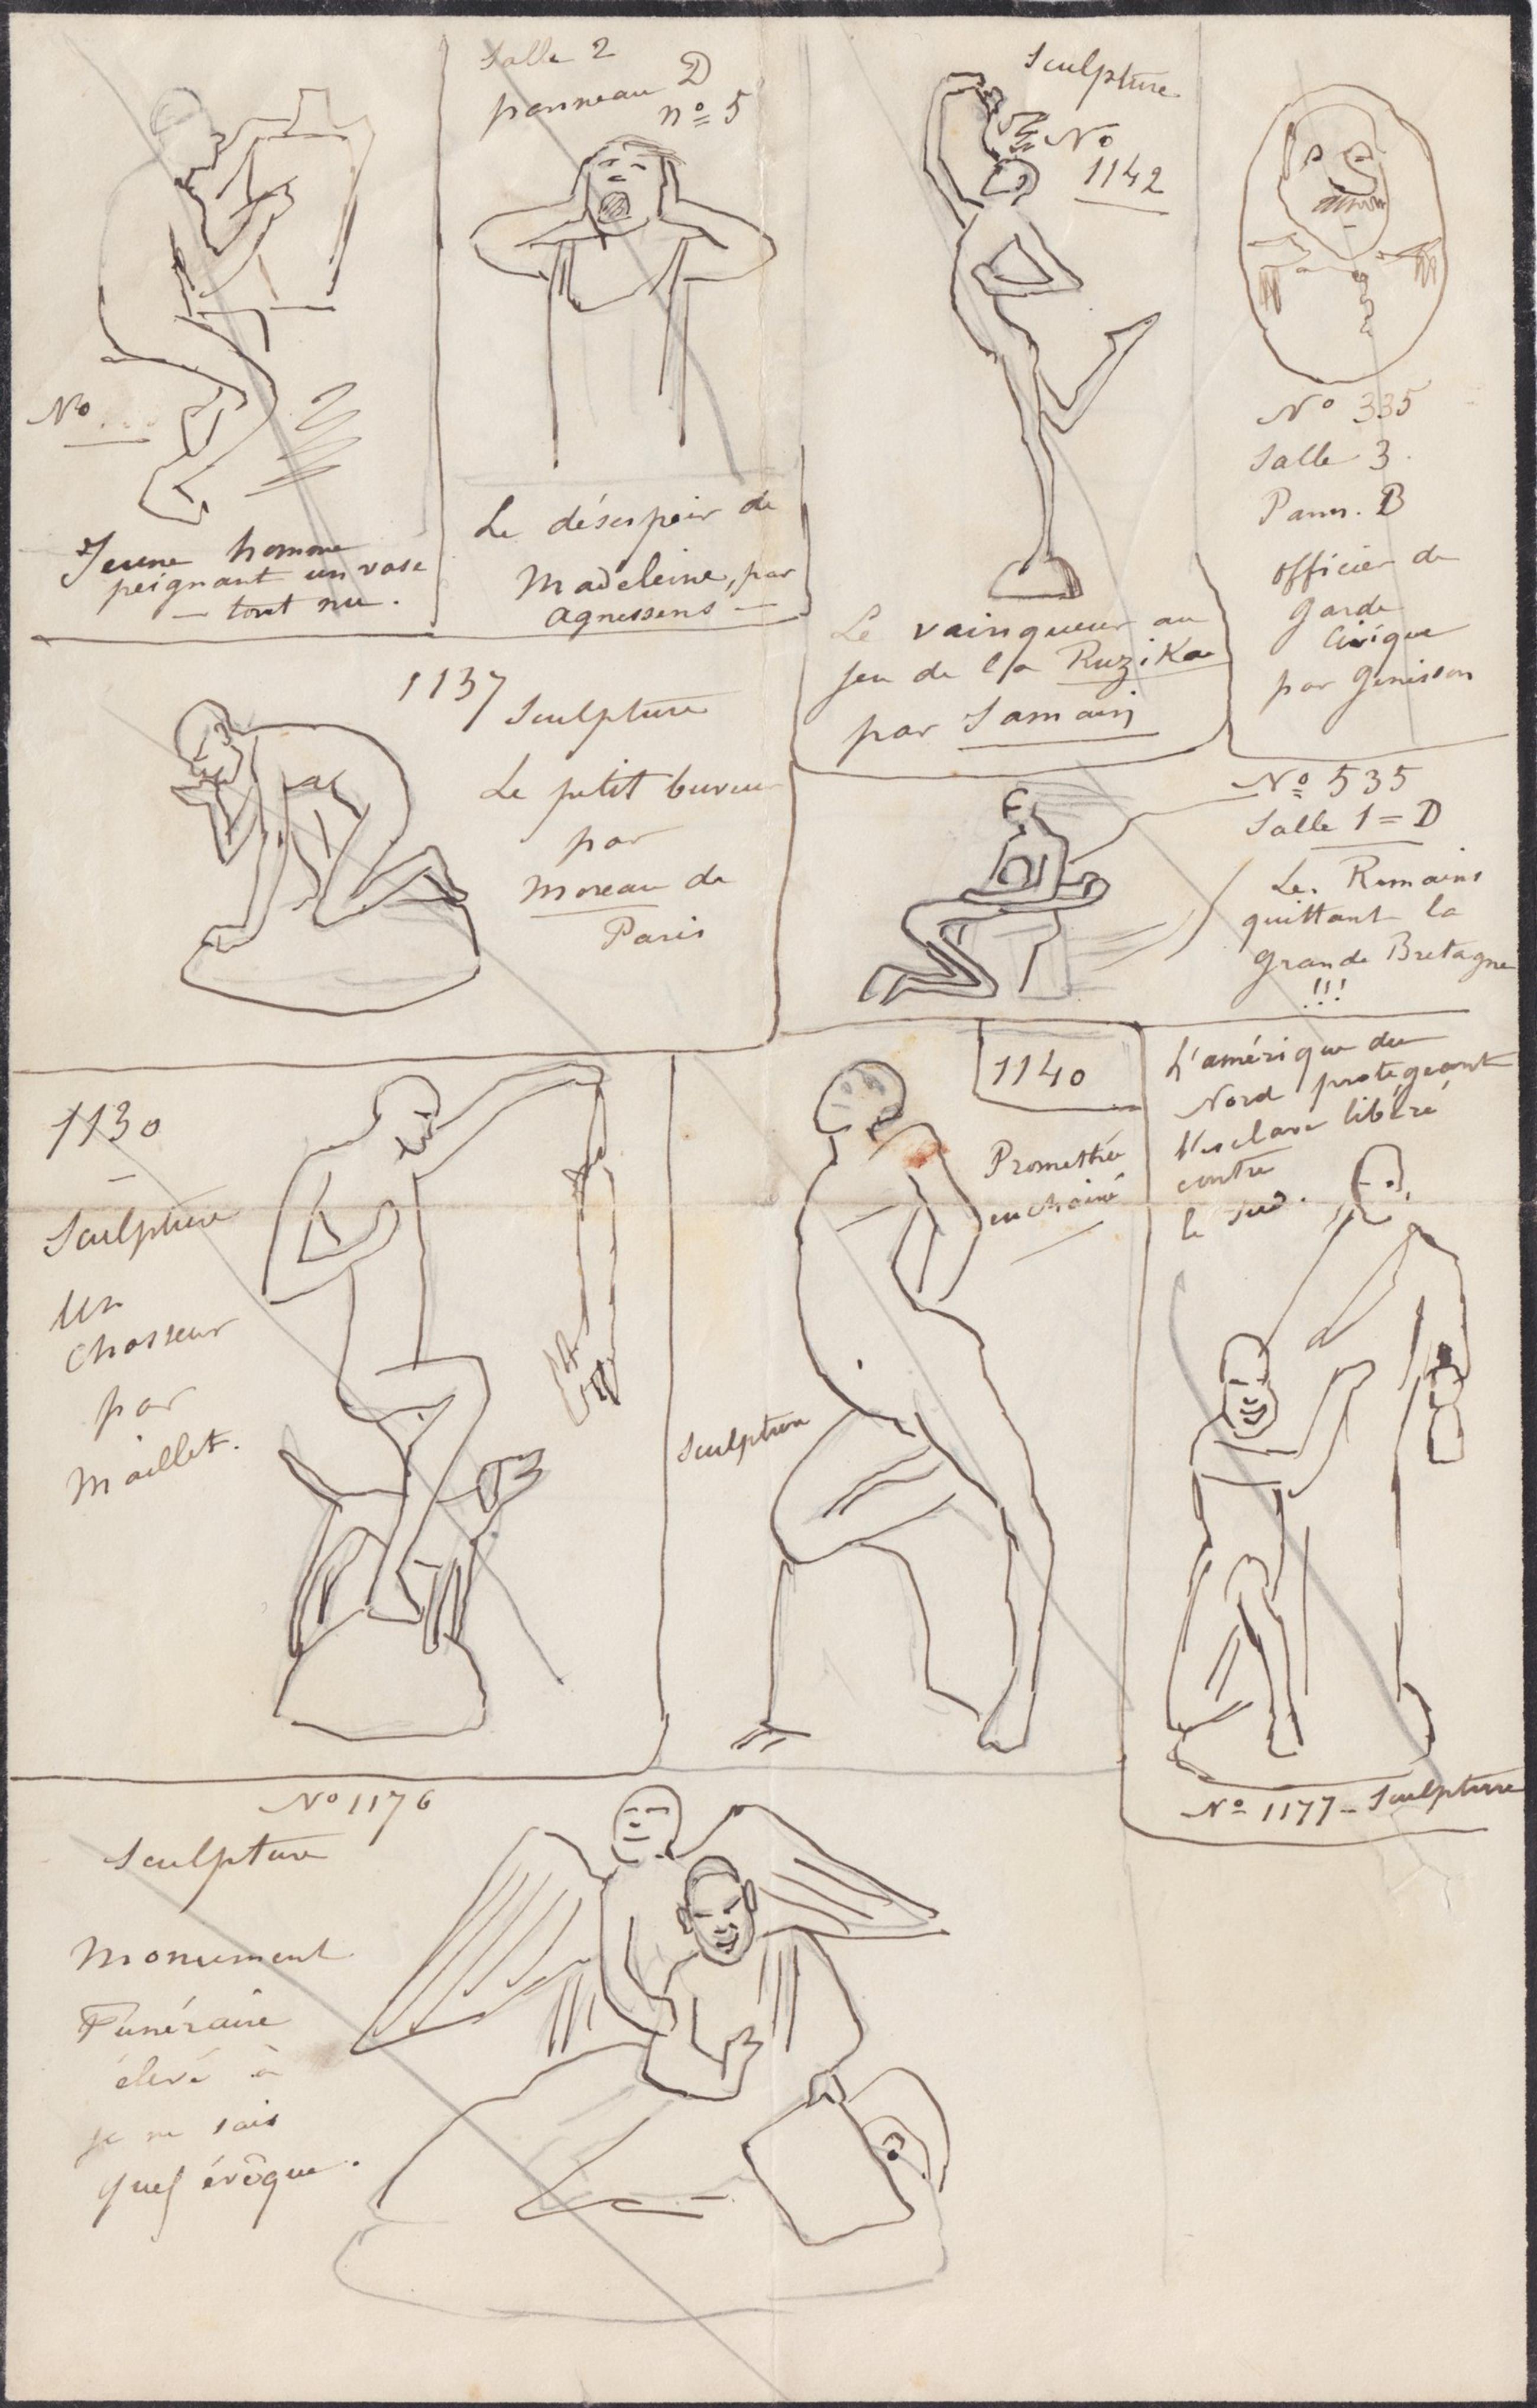 No ...
Jeune homme
peignant un vase
— tout nu.
Salle 2
panneau D
no 5
Le désespoir de
Madeleine, par
Agnessens —
Sculpture
No
1142
Le vainqueur au
jeu de la Ruzika
par Samain
No 335
Salle 3.
Pann. B
Officier de
Garde
Civique
par Genisson
1137
Sculpture
Le petit buveur
par
Moreau de
Paris
No 535
Salle 1 = D
Les Romains
quittant la
Grande Bretagne
!!!
1130
—
Sculpture
Un
Chasseur
par
Maillet.
1140
Promethée
enchainé
Sculpture
L'amérique du
Nord protégeant
l'esclave libéré
contre
le sud.
No 1177 - Sculpture
No 1176
Sculpture
Monument
Funéraire
élevé à
je ne sais
quel évêque.